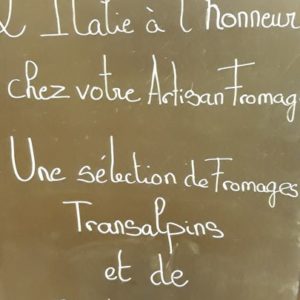 L'Italie à l'honneur
chez votre Artisan Fromag
Une sélection de Fromages
Transalpins
et de